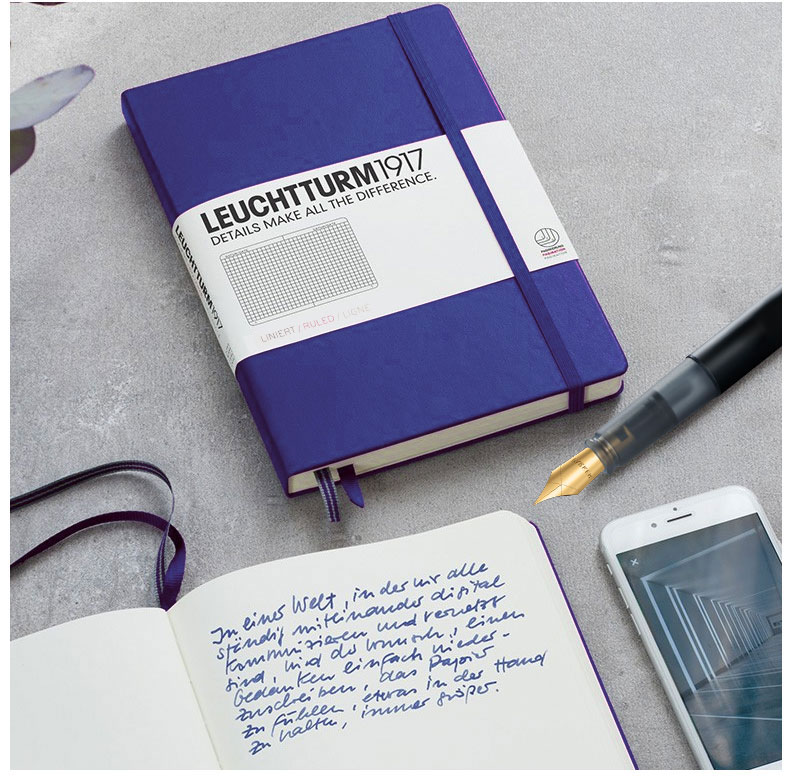 LEUCHTTURM1917
DETAILS MAKE ALL THE DIFFERENCE.
LINIERT / RULED / LIGNÉ
LEUCHTTURM1917
In einer Welt, in der wir alle
ständig miteinander digital
kommunizieren und vernetzt
sind, wird der Wunsch, einen
Gedanken einfach nieder-
zuschreiben, das Papier
zu fühlen, etwas in der Hand
zu halten, immer größer.